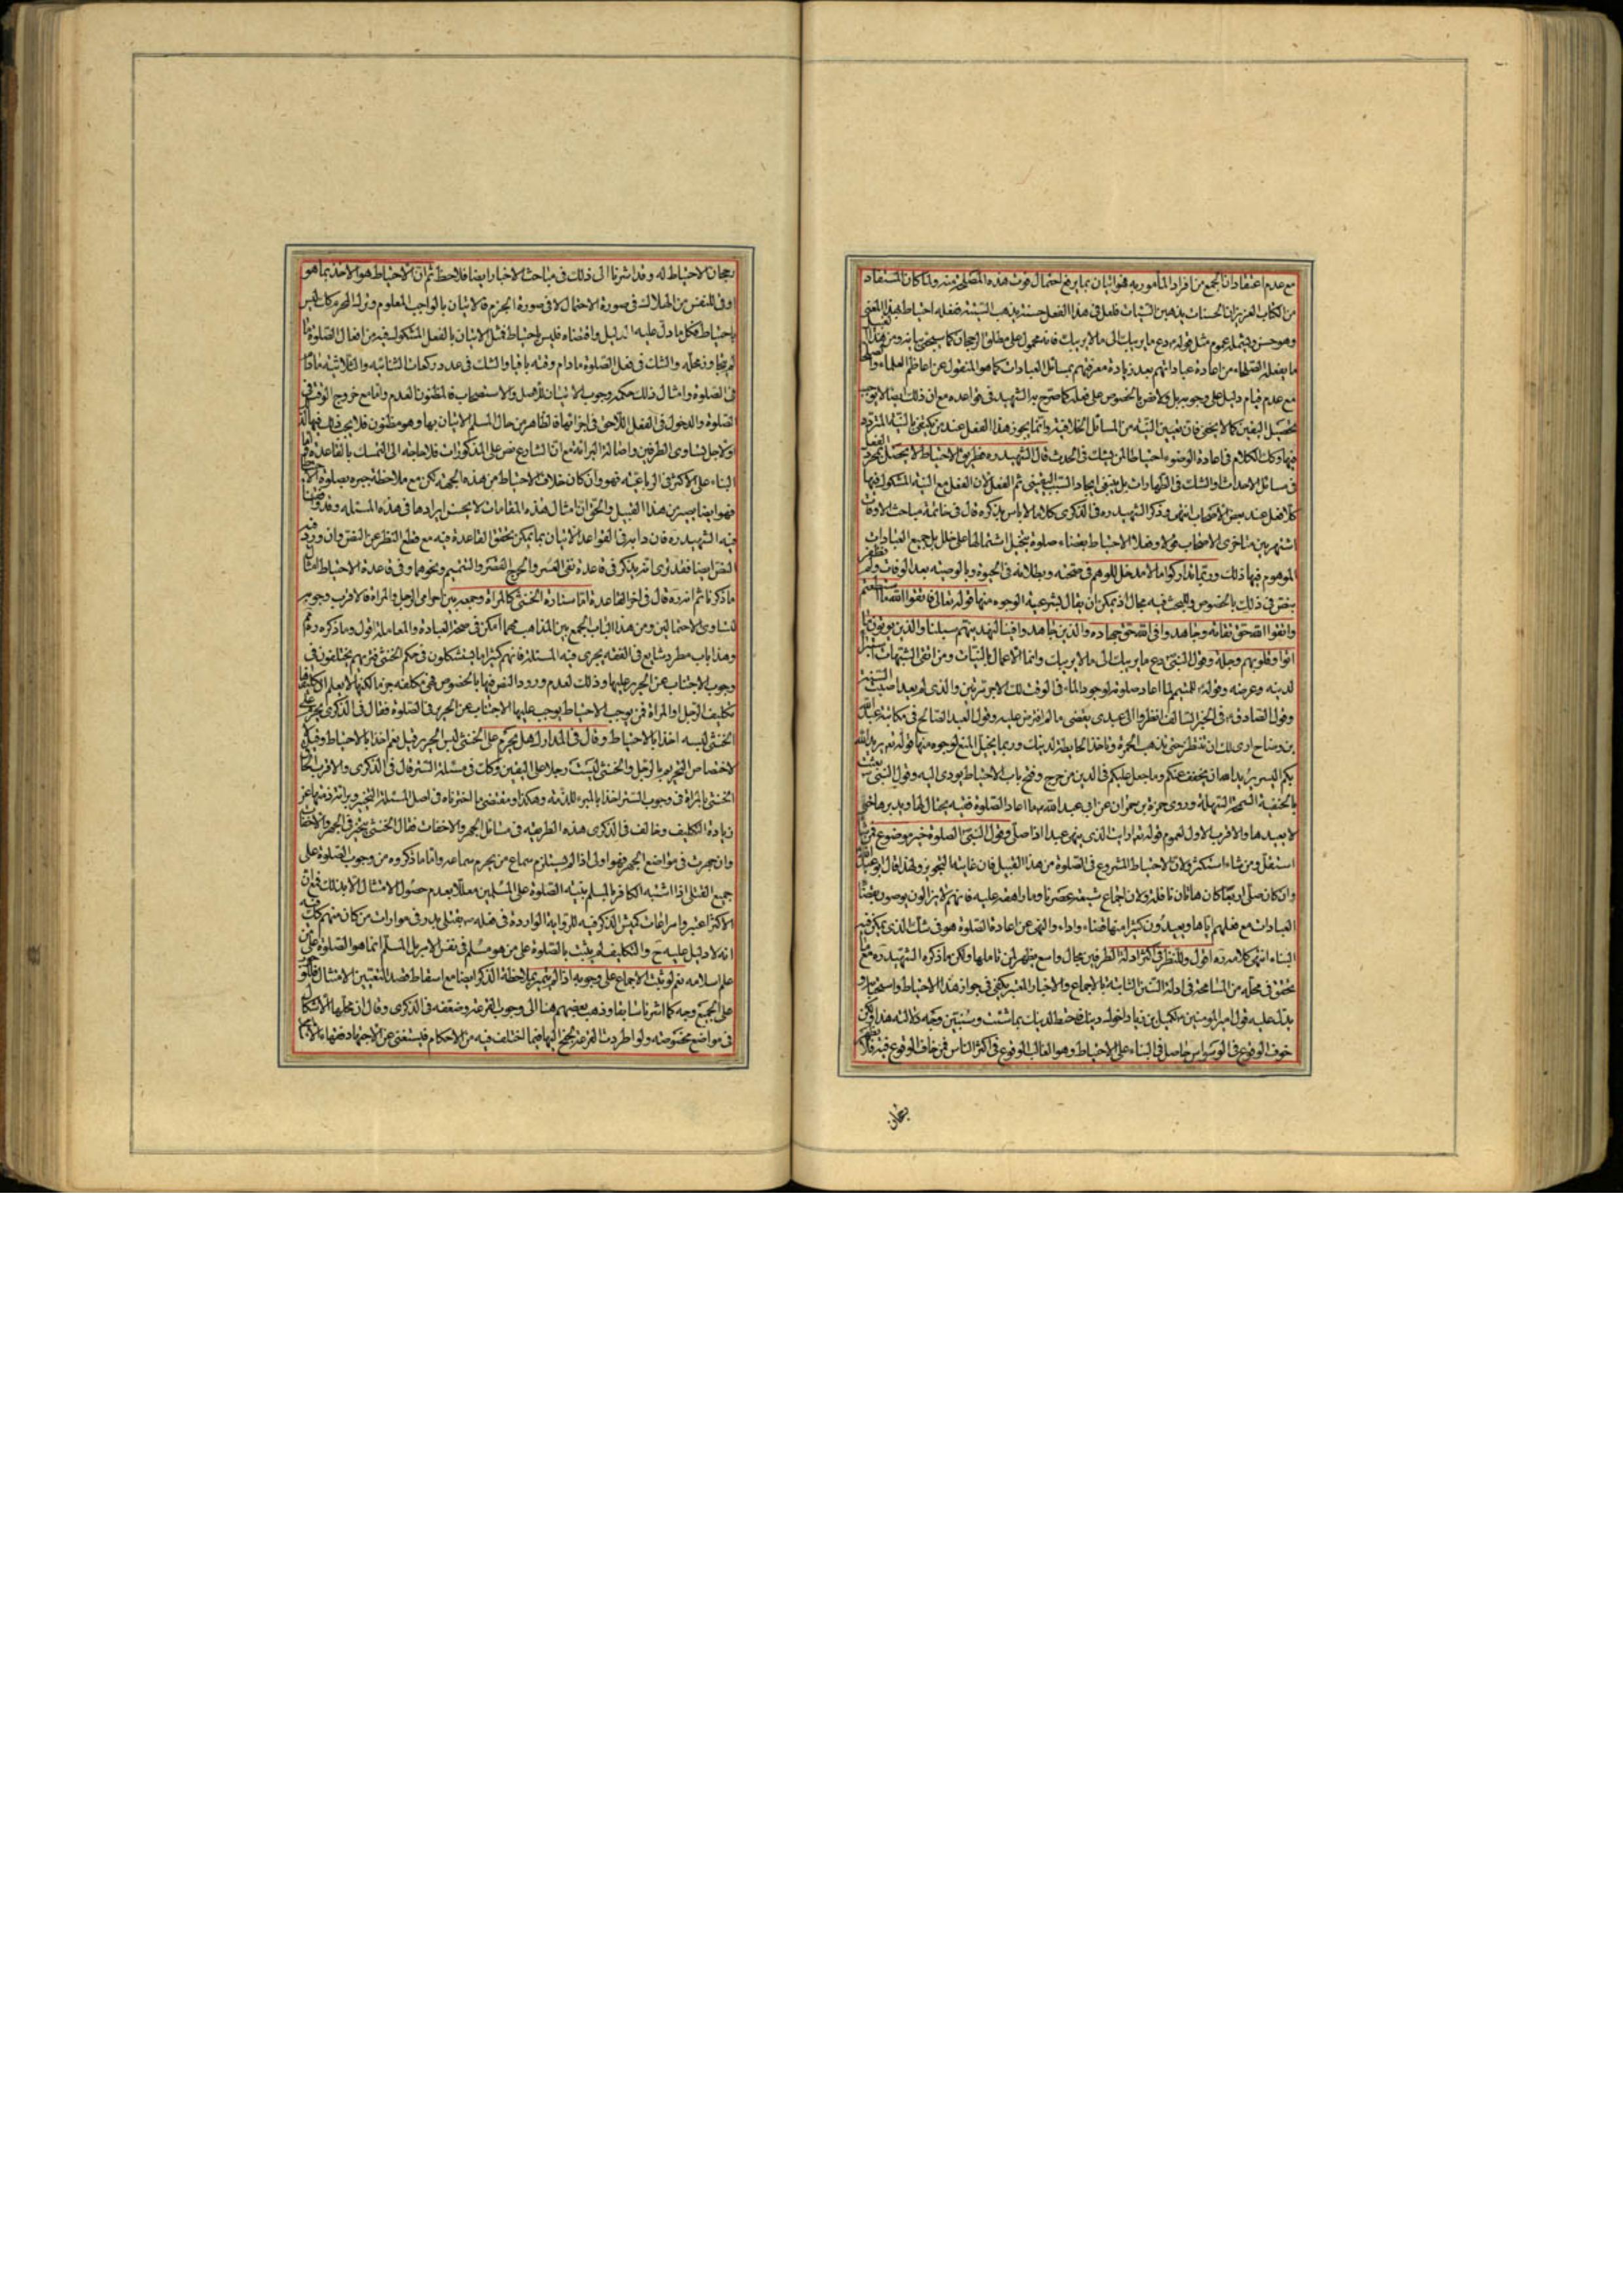 مع عدم اعتقاد ان الجمع من افراد المأمور به فهو اتيان بما يرفع احتمال فوت هذه المصلحة منه ولما كان المستفاد
من الكتاب العزيز ان الحسنات يذهبن السيئات فلعل فى هذا الفعل حسنة يذهب السيئة ففعله احتياط بهذا المعنى
وهو حسن ويشمله عموم مثل قوله دع ما يريبك الى ما لا يريبك فانه محمول على مطلق الرجحان كما سيجئ بيانه ومن هذا القبيل
ما يفعله الصلحاء من اعادة عباداتهم بعد زيادة معرفتهم بمسائل العبادات كما هو المنقول عن اعاظم العلماء والصلحا
مع عدم قيام دليل على وجوبه بل ولا نص بالخصوص على فضله كما صرح به الشهيد فى قواعده مع ان ذلك ايضا لا يوجب
تحصيل اليقين كما لا يخفى فان تعيين النية من المسائل الخلافية وانما يجوز هذا الفعل عند من يكتفى بالنية المترددة
فيها وكك الكلام فى اعادة الوضوء احتياطا لمن يشك فى الحدث قال الشهيد ره فطريق الاحتياط لا يحصل بمجرد الفعل
فى مسائل الاحداث والشك فى الطهارات بل ينبغى ايجاد السبب اليقينى ثم الفعل لان الفعل مع النية المشكوك فيها
كلا فعل عند بعض الاصحاب انتهى وذكر الشهيد ره فى الذكرى كلاما لا باس بذكره قال فى خاتمة مباحث الاوقات
اشتهر بين متاخرى الاصحاب قولا وفعلا الاحتياط بقضاء صلوة يتخيل اشتمالها على خلل بل جميع العبادات
الموهوم فيها ذلك وربما تداركوا ما لا مدخل للوهم فى صحته وبطلانه فى الحيوة وبالوصية بعد الوفات ولم نظفر
بنص فى ذلك بالخصوص وللبحث فيه مجال اذ يمكن ان يقال بشرعيته لوجوه منها قوله تعالى فاتقوا الله ما استطعتم
واتقوا الله حق تقاته وجاهدوا فى الله حق جهاده والذين جاهدوا فينا لنهدينهم سبلنا والذين يؤتون ما
اتوا وقلوبهم وجلة وقول النبى دع ما يريبك الى ما لا يريبك وانما الاعمال بالنيات ومن اتقى الشبهات استبرأ
لدينه وعرضه وقوله للمتيمم لما اعاد صلوته لوجود الماء فى الوقت لك الاجر مرتين والذى لم يعد اصبت السنة
وقول الصادق فى الخبر السالف انظروا الى عبدى يقضى ما لم افترض عليه وقول العبد الصالح فى مكاتبة عبد الله
بن وضاح ارى لك ان تنتظر حتى تذهب الحمرة وتاخذ الحايطة لدينك وربما يتخيل المنع لوجوه منها قوله تعالى يريد الله
بكم اليسر يريد الله ان يخفف عنكم وما جعل عليكم فى الدين من حرج وفتح باب الاحتياط يؤدى اليه وقول النبى بعثت
بالحنفية السمحة السهلة وروى حمزة بن حمران عن ابى عبد الله ما اعاد الصلوة فقيه يحتال لها ويدبرها حتى
لا يعيدها والاقرب الاول لعموم قوله تع ارايت الذى ينهى عبدا اذا صلى وقول النبى الصلوة خير موضوع فمن شاء
استقل ومن شاء استكثر ولان الاحتياط المشروع فى الصلوة من هذا القبيل فان غايته التجويز ولهذا قال ابو عبد الله
وان كان صلى اربعا كان هاتان نافلة ولان اجماع شيعة عصرنا وما راهقه عليه فانهم لا يزالون يوصون بقضاء
العبادات مع فعلهم اياها ويعيدون كثيرا منها قضاء واداء والنهى عن اعادة الصلوة هو فى شك الذى يمكن فيه
البناء انتهى كلامه ره اقول وللنظر فى اكثر ادلة الطرفين مجال واسع يظهر لمن تاملها ولكن ما ذكره الشهيد ره مع ما
تحقق فى محله من المسامحة فى ادلة السنن الثابتة بالاجماع والاخبار المعتبرة يكفى فى جواز هذا الاحتياط واستحبابه و
يدل عليه قول امير المؤمنين لكميل بن زياد اخوك دينك فاحتط لدينك بما شئت وسنبين وجه دلالته هذا ولكن
خوف الوقوع فى الوسواس حاصل فى البناء على الاحتياط وهو الغالب الوقوع فى اكثر الناس فمن خاف الوقوع فيه فلا يظهر
رجحان
رجحان الاحتياط له وقد اشرنا الى ذلك فى مباحث الاخبار ايضا فلاحظ ثم ان الاحتياط هو الاخذ بما هو
اوقى للنفس من الهلاك فى صورة الاحتمال لا فى صورة الجزم فالاتيان بالواجب المعلوم وترك المحرم كك ليس
باحتياط فكل ما دل عليه الدليل واقتضاه فليس باحتياط فمثل الاتيان بالفعل المشكوك فيه من افعال الصلوة ما
لم يتجاوز محله والشك فى فعل الصلوة ما دام وقته باقيا والشك فى عدد ركعات الثنائيه والثلاثيه ما دام
فى الصلوة وامثال ذلك حكمه وجوب الاتيان للاصل والاستصحاب فالمظنون العدم واما مع خروج الوقت فى
الصلوة والدخول فى الفعل اللاحق فى اجزائها فالظاهر من حال المسلم الاتيان بها وهو مظنون فلا يجب
او لاجل تساوى الطرفين واصالة البرائة مع ان الشارع نص على المذكورات فلا حاجة الى التمسك بالقاعدة واما
البناء على الاكثر فى الرباعية فهو وان كان خلاف الاحتياط من هذه الجهة لكن مع ملاحظة جبره بصلوة الاحتياط
فهو ايضا يصير من هذا القبيل والحق ان امثال هذه المقامات لا يحسن ايرادها فى هذه المسئلة وقد
فيه الشهيد ره فان دابه فى القواعد الاتيان بما يمكن تحقق القاعدة فيه مع قطع النظر عن النص وان ورد فيه
النص ايضا فقد ترى انه يذكر فى قاعدة نفى العسر والحرج القصر والتيمم ونحوهما وفى قاعدة الاحتياط امثال
ما ذكرنا ثم انه ره قال فى اخر القاعدة اما ستارة الخنثى كالمراة وجمعه بين احرامى الرجل والمراة فالاقرب وجوبه
لتساوى الاحتمالين ومن هذا الباب الجمع بين المذاهب مهما امكن فى صحة العبادة والمعاملة اقول وما ذكره ره تم
وهذا باب مطرد شايع فى الفقه يجرى فيه المسئلة فانهم كثيرا ما يستشكلون فى حكم الخنثى فتريهم يختلفون فى
وجوب الاجتناب عن الحرير عليها وذلك لعدم ورود النص فيها بالخصوص فهى مكلفه جزما لكنها لا يعلم ان تكليفها
تكليف الرجل او المراة فمن يوجب الاحتياط يوجب عليها الاجتناب عن الحرير فى الصلوة فقال فى الذكرى يحرم على
الخنثى لبسه اخذا بالاحتياط وقال فى المدارك هل يحرم على الخنثى لبس الحرير قيل نعم اخذا بالاحتياط وقيل لا
لاختصاص التحريم بالرجل والخنثى ليست رجلا على اليقين وكك فى مسئلة الستر قال فى الذكرى والاقرب الحاق
الخنثى بالمراة فى وجوب الستر اخذا بالمبرء للذمه وهكذا ومقتضى ما اخترناه فى اصل المسئلة التخيير وبرائة ذمتها عن
زيادة التكليف وخالف فى الذكرى هذه الطريقه فى مسائل الجهر والاخفات فقال الخنثى يتخير فى الجهر والاخفات
وان جهرت فى مواضع الجهر فهو اولى اذا لم يستلزم سماع من يحرم سماعه واما ما ذكروه من وجوب الصلوة على
جميع القتلى اذا اشتبه الكافر بالمسلم بنية الصلوة على المسلمين معللا بعدم حصول الامتثال الا بذلك فمع ان
الاكثر اعتبروا مراعات كميش الذكر فيه للرواية الواردة فى فعله بقتلى بدر فى موارات من كان منهم كك فيه
انه لا دليل عليه ح والتكليف لم يثبت بالصلوة على من هو مسلم فى نفس الامر بل المسلم انما هو الصلوة على من
علم اسلامه نعم لو ثبت الاجماع على وجوبه اذا لم يتميز بملاحظة الذكر ايضا مع اسقاط قصد التعيين الامتثال
على الجميع وجه كما اشرنا سابقا وذهب بعضهم هنا الى وجوب القرعة وضعفه فى الذكرى وقال ان محلها الاشكال
فى مواضع مخصوصه ولو اطردت القرعة لجنح اليها فيما اختلف فيه من الاحكام فليستغنى عن الاجتهاد فقهاء الاسلام